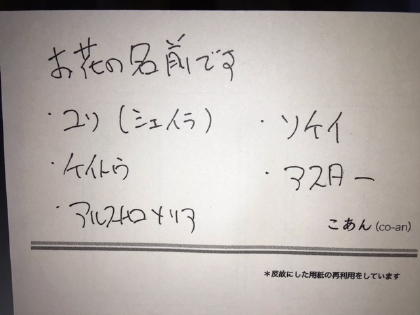 お花の名前です
・ユリ（シェイラ）
・ケイトウ
・アルストロメリア
・ソケイ
・アスター
こあん(co-an)
＊反故にした用紙の再利用をしています